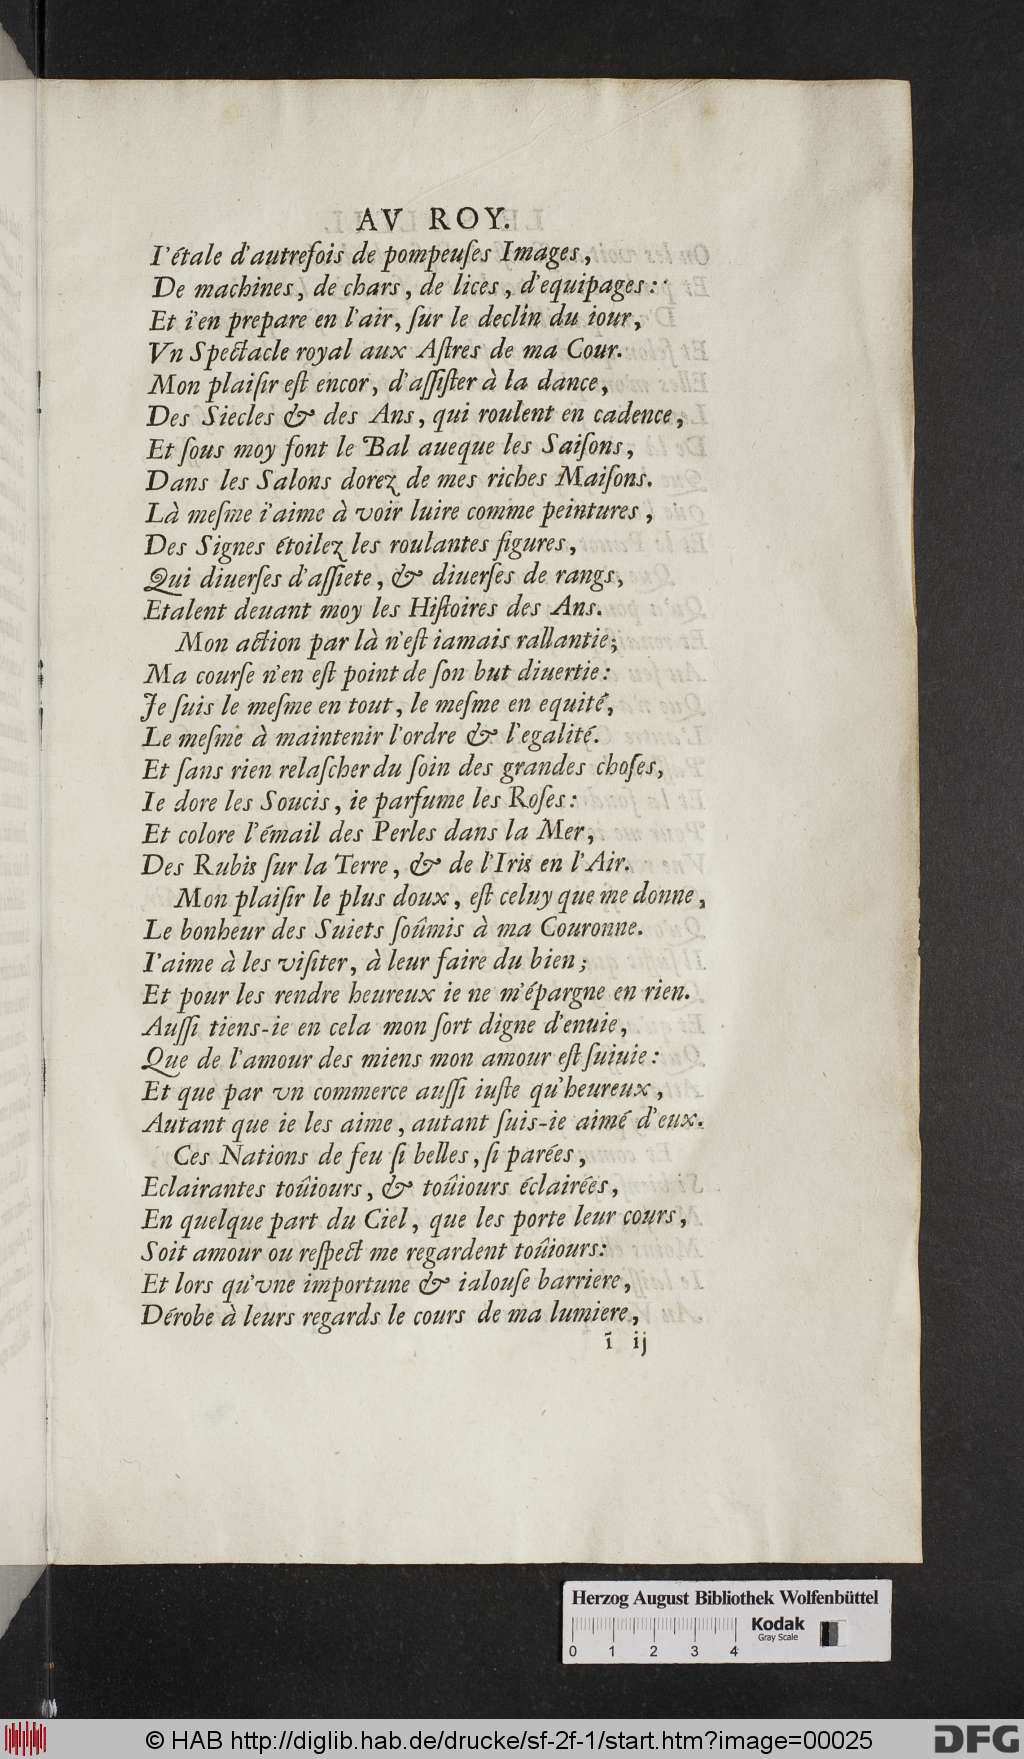 AV ROY.
I'étale d'autrefois de pompeuſes Images,
De machines, de chars, de lices, d'equipages:
Et i'en prepare en l'air, ſur le declin du iour,
Vn Spectacle royal aux Aſtres de ma Cour.
Mon plaiſir eſt encor, d'aſſiſter à la dance,
Des Siecles & des Ans, qui roulent en cadence,
Et ſous moy font le Bal aueque les Saiſons,
Dans les Salons dorez de mes riches Maiſons.
Là meſme i'aime à voir luire comme peintures,
Des Signes étoilez les roulantes figures,
Qui diuerſes d'aſſiete, & diuerſes de rangs,
Etalent deuant moy les Hiſtoires des Ans.
Mon action par là n'eſt iamais rallantie;
Ma courſe n'en eſt point de ſon but diuertie:
Je ſuis le meſme en tout, le meſme en equité,
Le meſme à maintenir l'ordre & l'egalité.
Et ſans rien relaſcher du ſoin des grandes choſes,
Ie dore les Soucis, ie parfume les Roſes:
Et colore l'émail des Perles dans la Mer,
Des Rubis ſur la Terre, & de l'Iris en l'Air.
Mon plaiſir le plus doux, eſt celuy que me donne,
Le bonheur des Suiets ſoûmis à ma Couronne.
I'aime à les viſiter, à leur faire du bien;
Et pour les rendre heureux ie ne m'épargne en rien.
Auſſi tiens-ie en cela mon ſort digne d'enuie,
Que de l'amour des miens mon amour eſt ſuiuie:
Et que par vn commerce auſſi iuſte qu'heureux,
Autant que ie les aime, autant ſuis-ie aimé d'eux.
Ces Nations de feu ſi belles, ſi parées,
Eclairantes toûiours, & toûiours éclairées,
En quelque part du Ciel, que les porte leur cours,
Soit amour ou reſpect me regardent toûiours:
Et lors qu'vne importune & ialouſe barriere,
Dérobe à leurs regards le cours de ma lumiere,
ĩ ij
Herzog August Bibliothek Wolfenbüttel
Kodak
Gray Scale
0 1 2 3 4
© HAB http://diglib.hab.de/drucke/sf-2f-1/start.htm?image=00025
DFG